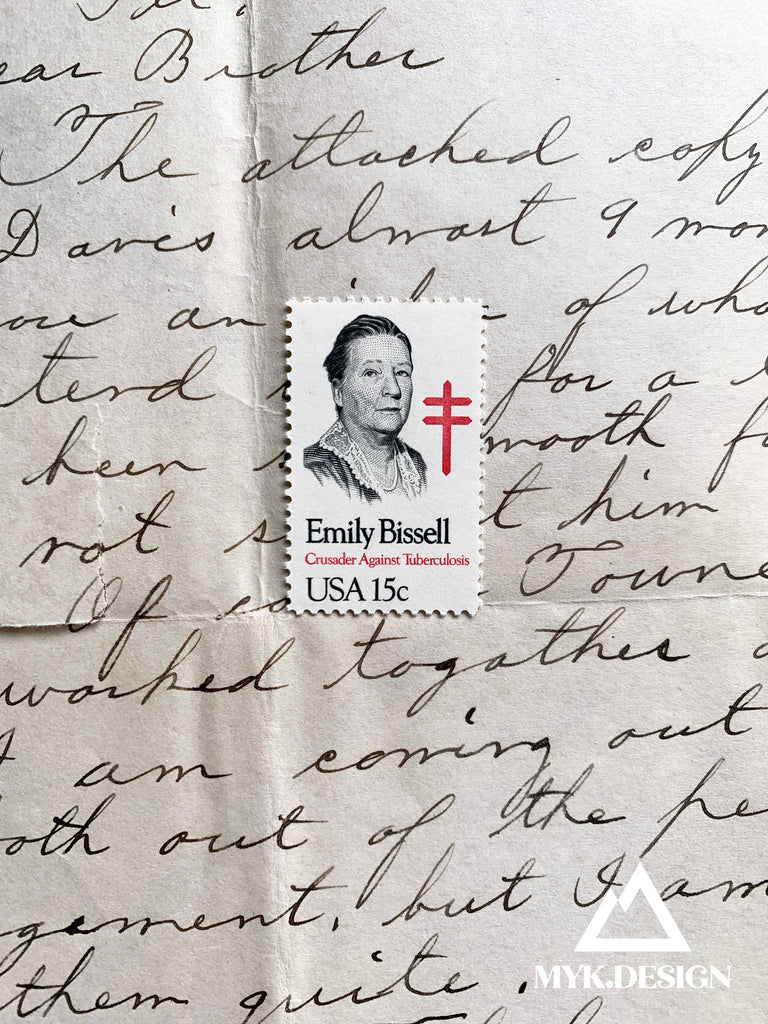 ear Brother
The attached copy
Davis almost 9 mon
an of who
tend for a
been smooth fo
not him
Of Towne
worked together a
I am coming out
oth out of the pe
gement, but I am
them quite.
Emily Bissell
Crusader Against Tuberculosis
USA 15c
MYK.DESIGN